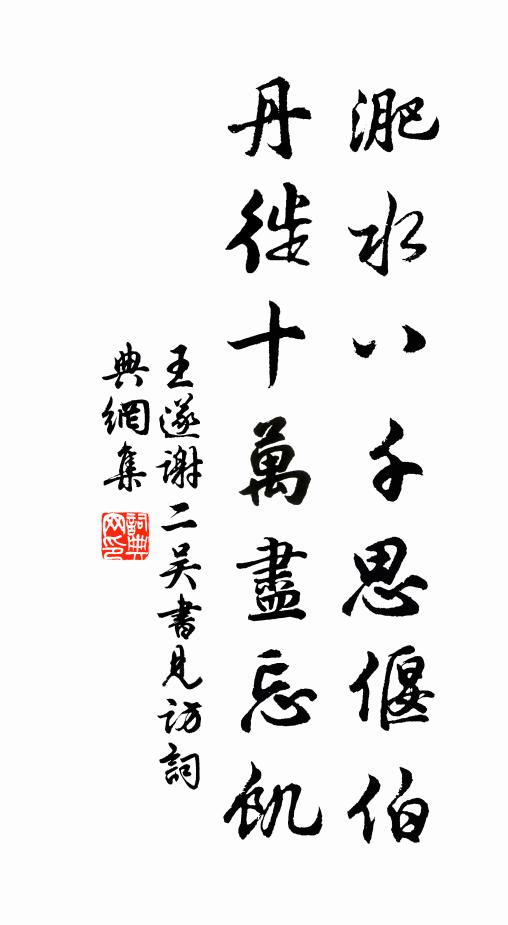 淝水八千思偃伯
丹徒十萬盡忘飢
王遂謝二吳書見訪詞
典網集
詞典
网印